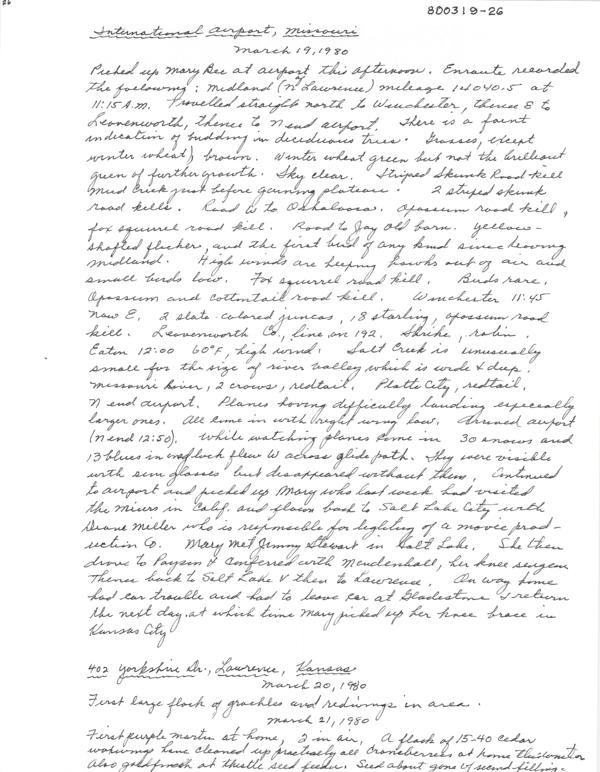 800319-26
International Airport, Missouri
March 19, 1980
Picked up Mary Bee at airport this afternoon. Enroute recorded
the following: Midland (N Lawrence) mileage 14040.5 at
11:15 A.M. Travelled straight north to Winchester, thence E to
Leavenworth, thence to N end airport. There is a faint
indication of budding in deciduous trees. Grasses, (except
winter wheat) brown. Winter wheat green but not the brilliant
green of further growth. Sky clear. Striped Skunk Road kill
Mud Creek just before gaining plateau. 2 striped skunk
road kills. Road W to Oskaloosa. Opossum road kill,
fox squirrel road kill. Road to Jay Old barn. Yellow-
shafted flicker, and the first bird of any kind since leaving
Midland. High winds are keeping hawks out of air and
small birds low. Fox squirrel road kill. Birds rare.
Opossum and cottontail road kill. Winchester 11:45
Now E. 2 slate-colored juncos, 18 starling, opossum road
kill. Leavenworth Co. line on 192. Shrike, robin.
Eaton 12:00 60°F, high wind. Salt Creek is unusually
small for the size of river valley which is wide & deep.
Missouri River, 2 crows, redtail. Platte City, redtail.
N end airport. Planes having difficulty landing especially
larger ones. All come in with right wing low. Arrived airport
(N end 12:50). While watching planes come in 30 snows and
13 blues in one flock flew W across glide path. They were visible
with sun glasses but disappeared without them. Continued
to airport and picked up Mary who last week had visited
the in Calif. and flown back to Salt Lake City with
Diane Miller who is responsible for lighting of a movie prod-
uction Co. Mary met Jimmy Stewart in Salt Lake. She then
drove to Payson & conferred with Mendenhall, her knee surgeon
Thence back to Salt Lake & then to Lawrence. On way home
had car trouble and had to leave car at Gladestone & return
the next day at which time Mary picked up her knee brace in
Kansas City
402 Yorkshire Dr., Lawrence, Kansas
March 20, 1980
First large flock of grackles and redwings in area.
March 21, 1980
First purple martin at home, 2 in air. A flock of 15-40 cedar
waxwings have cleaned up practically all Craneberries at home this winter
Also goldfinch at thistle seed feeder. Seed about gone of second filling.